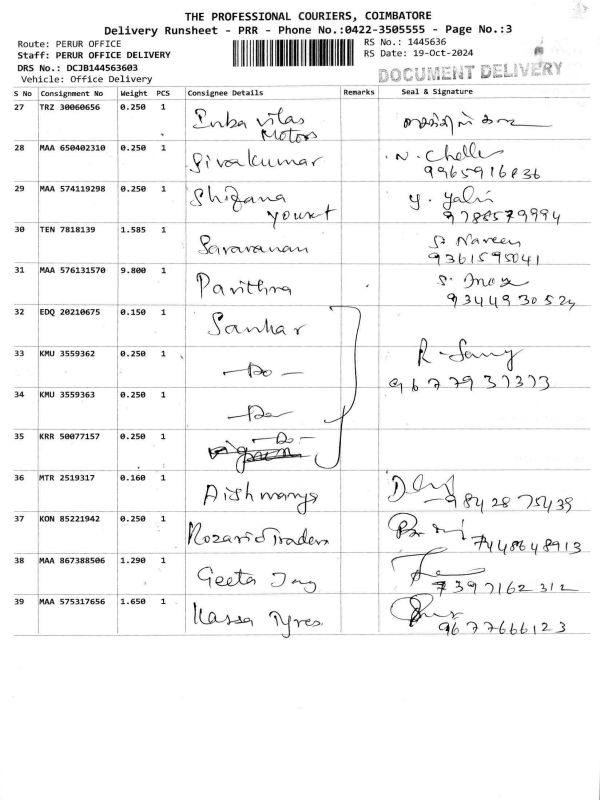 THE PROFESSIONAL COURIERS, COIMBATORE
Delivery Runsheet - PRR - Phone No.:0422-3505555 - Page No.:3
Route: PERUR OFFICE
RS No.: 1445636
Staff: PERUR OFFICE DELIVERY
RS Date: 19-Oct-2024
DRS No.: DCJB144563603
DOCUMENT DELIVERY
Vehicle: Office Delivery
S No Consignment No Weight PCS Consignee Details Remarks Seal & Signature
27 TRZ 30060656 0.250 1 Inba vilas
Motors
28 MAA 650402310 0.250 1 Sivakumar N. Chelle
29 MAA 574119298 0.250 1
9788579994
30 TEN 7818139 1.585 1 Saravanan S. Naveen
9361595041
31 MAA 576131570 9.800 1 Pavithra
9344930524
32 EDQ 20210675 0.150 1 Sankar
33 KMU 3559362 0.250 1 - Do -
9677937373
34 KMU 3559363 0.250 1 - Do -
35 KRR 50077157 0.250 1 - Do -
36 MTR 2519317 0.160 1 Aishwarya
9842875439
37 KON 85221942 0.250 1 Rozario Traders
7448648913
38 MAA 867388506 1.290 1 Geeta
7397162312
39 MAA 575317656 1.650 1 Kassa Tyres
9677666123